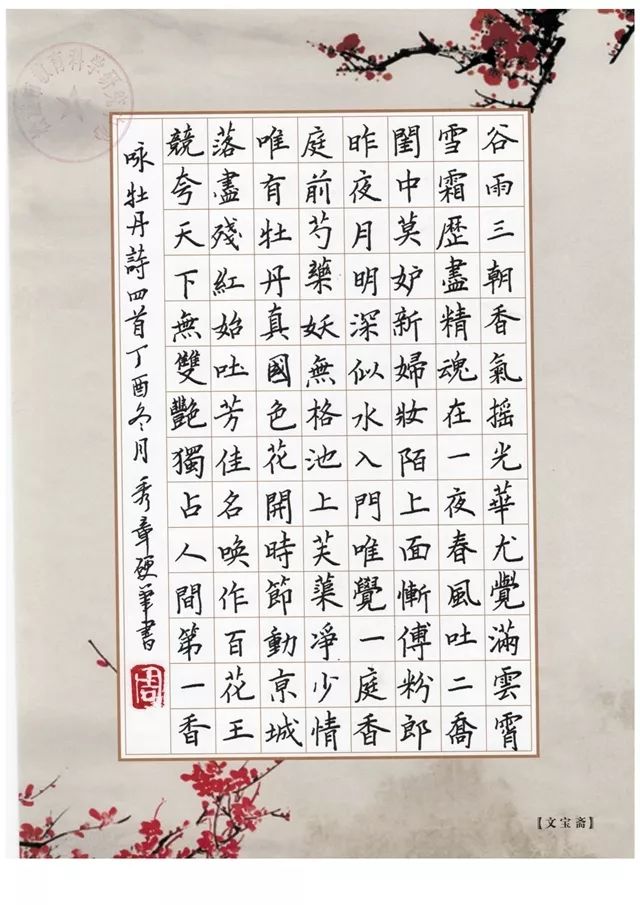 谷雨三朝香氣摇光華尤覺滿雲霄
雪霜歷盡精魂在一夜春風吐二喬
閨中莫妒新婦妝陌上面慚傅粉郎
昨夜月明深似水入門唯覺一庭香
庭前芍藥妖無格池上芙蕖淨少情
唯有牡丹真國色花開時節動京城
落盡殘紅始吐芳佳名唤作百花王
競夸天下無雙艷獨占人間第一香
咏牡丹詩四首丁酉冬月秀章硬筆書
周
【文宝斋】